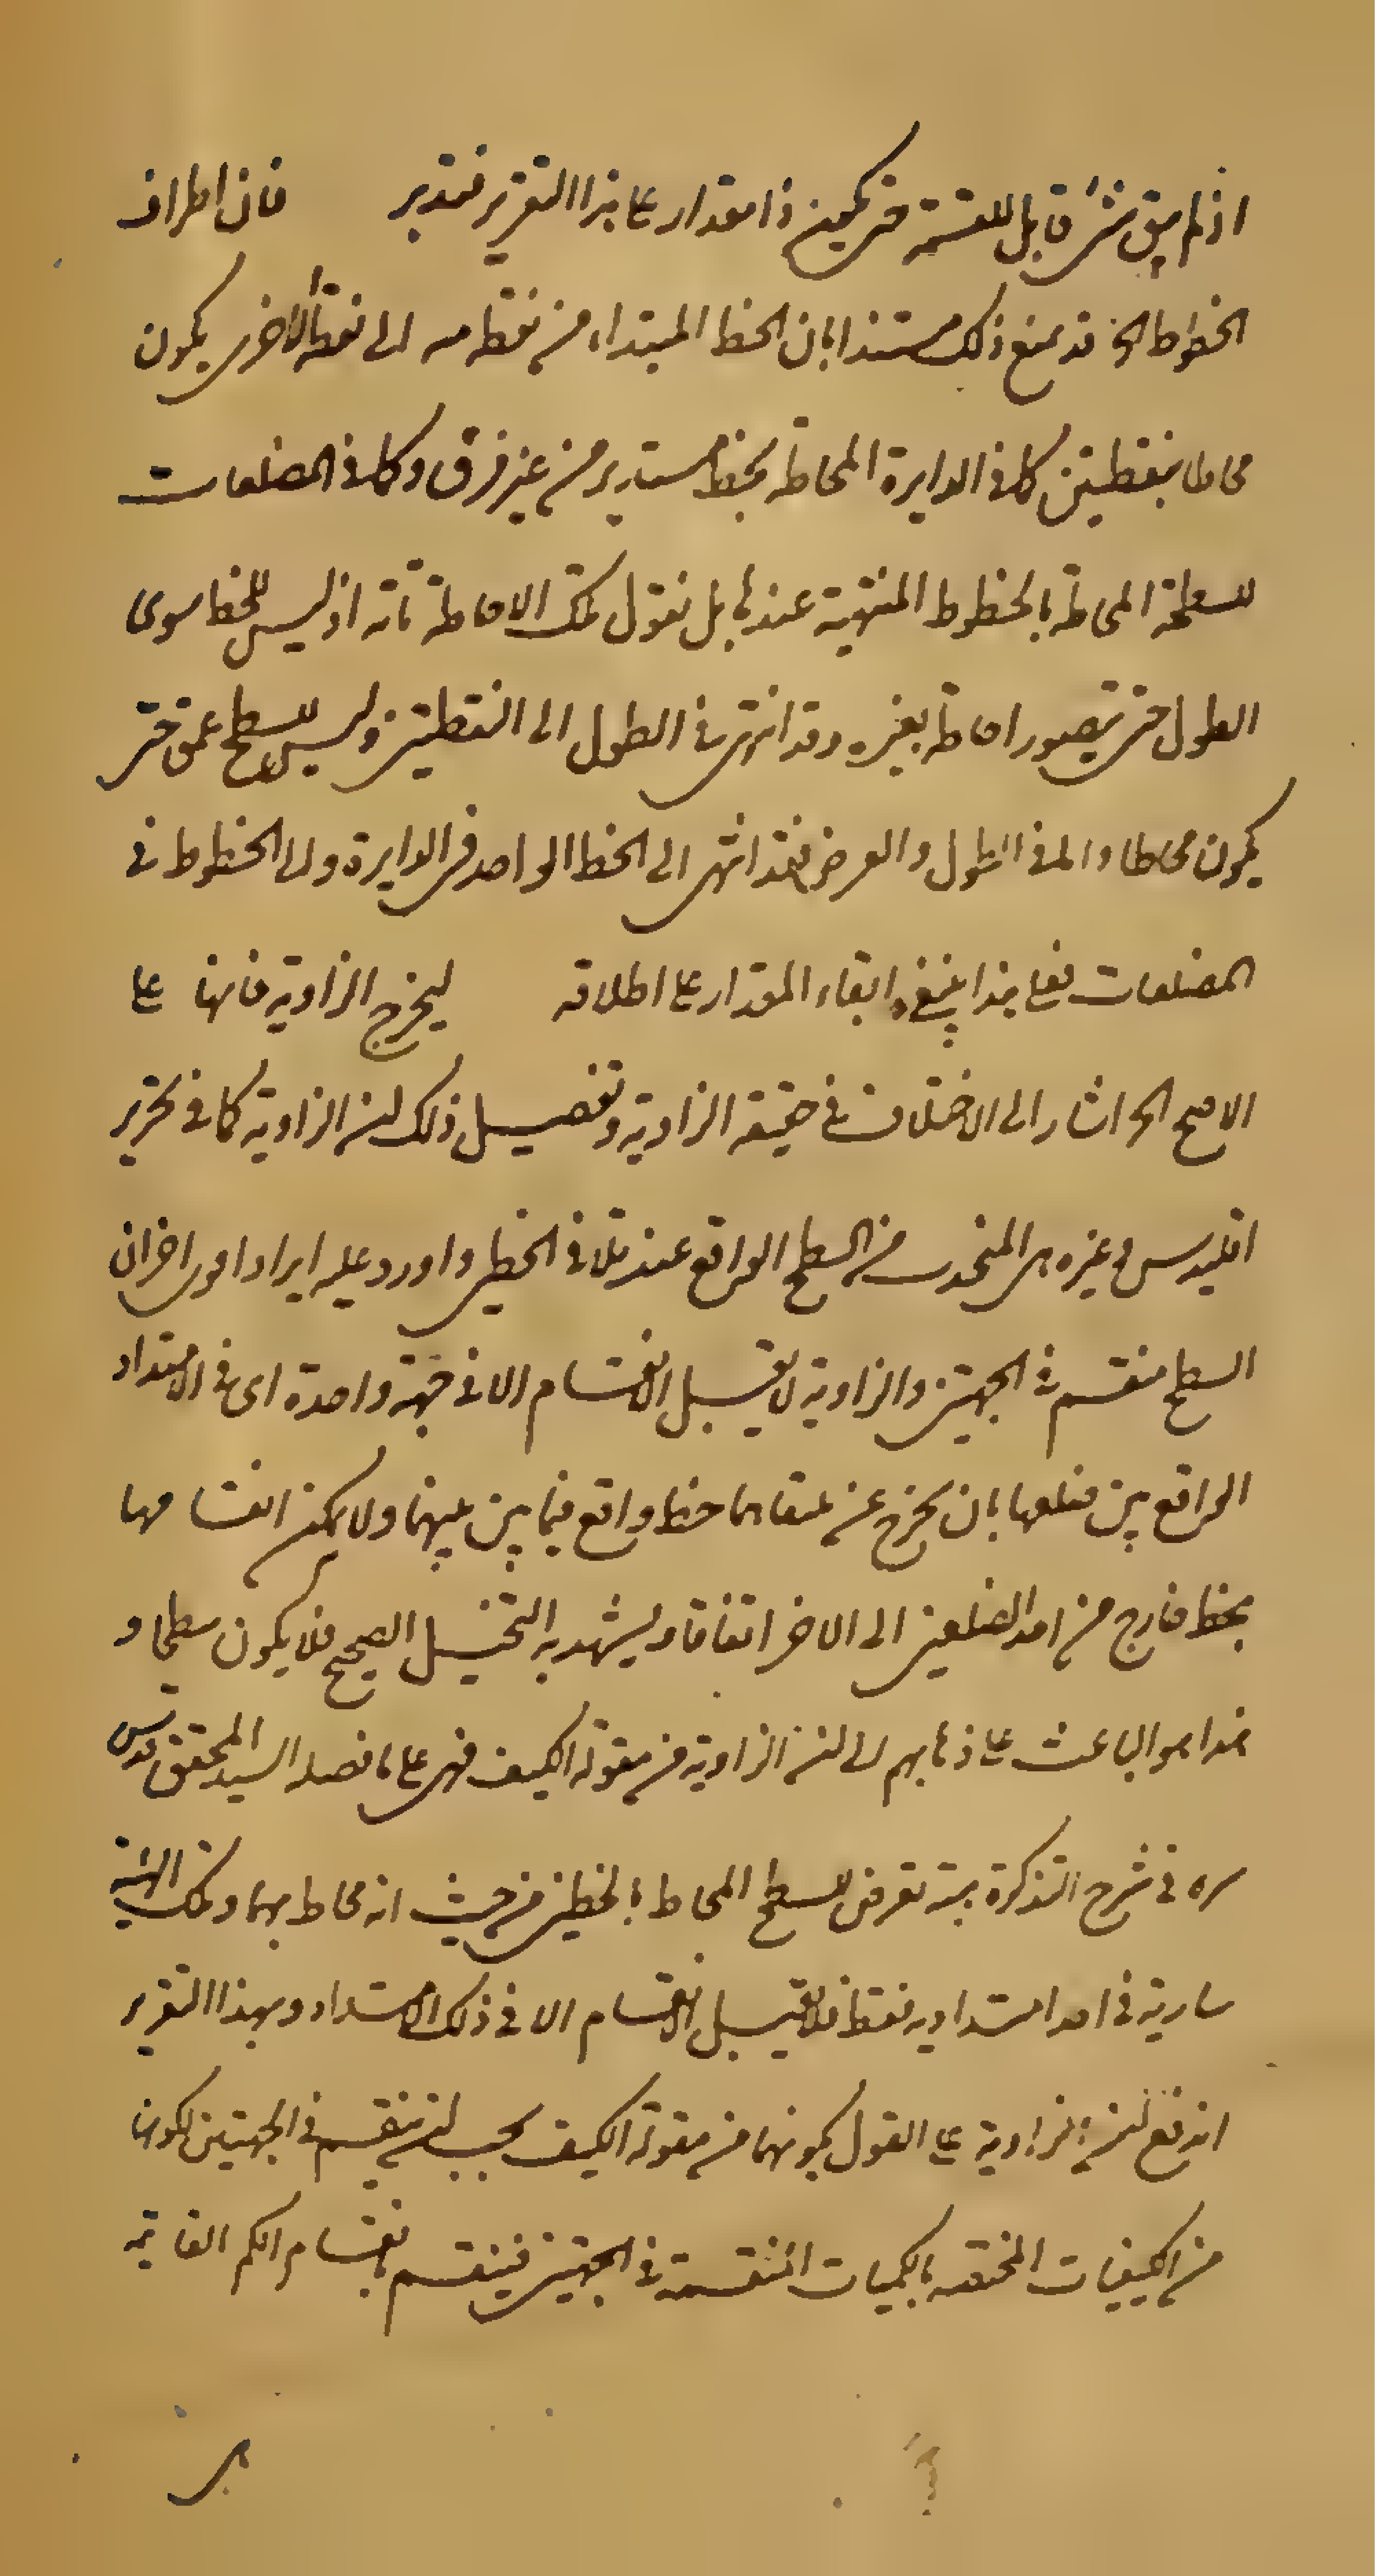 اذ لم يبق شئ قابل للقسمة حتى يكون ذا مقدار على هذا التقرير فتدبر فان اطراف
الخطوط الخ قد يمنع ذلك مستندا بان الخط المبتداء من نقطه الى نقطة اخرى يكون
محاطا بنقطتين كما فى الدايرة المحاطة بخط مستدير من غير فرق وكما فى المضلعات
المسطحة المحاطة بالخطوط المنتهية عندها بل نقول تلك الاحاطة تامة اذ ليس للخط سوى
الطول حتى يتصور احاطة بغيره وقد انتهى فى الطول الى النقطتين وليس للسطح عمق حتى
يكون محاطا واما فى الطول والعرض فقد انتهى الى الخط الواحد فى الدايرة والى الخطوط فى
المضلعات فعلى هذا ينبغى ابقاء المقدار على اطلاقه ليخرج الزاوية فانها على
الاصح الخ اشار الى الاختلاف فى حقيقة الزاوية وتفصيل ذلك ان الزاوية كما فى تحرير
اقليدس وغيره هى المنحدب من السطح الواقع عند تلاقى الخطين واورد عليه ايرادا قويا هو ان
السطح منقسم فى الجهتين والزاوية لا يقبل الانقسام الا فى جهة واحدة اى فى الامتداد
الواقع بين ضلعيها بان يخرج عن ملتقاهما خط واقع فيما بينهما ولا يمكن انقسامها
بخط خارج من احد الضلعين الى الاخر اتفاقا ويشهد به التخيل الصحيح فلا يكون سطحا و
هذا هو الباعث على ذهابهم الى ان الزاوية من مقولة الكيف فهى على ما فصله السيد المحقق قدس
سره فى شرح التذكرة هيئة تعرض للسطح المحاط بالخطين من حيث انه محاط بهما وتلك الهيئة
سارية فى احد امتداديه فقط فلا يقبل الانقسام الا فى ذلك الامتداد وبهذا التقرير
اندفع ان الزاوية على القول بكونها من مقولة الكيف يجب ان ينقسم فى الجهتين لكونها
من الكيفيات المختصه بالكميات المنقسمة فى الجهتين فينقسم بانقسام الكم القايمة
هى